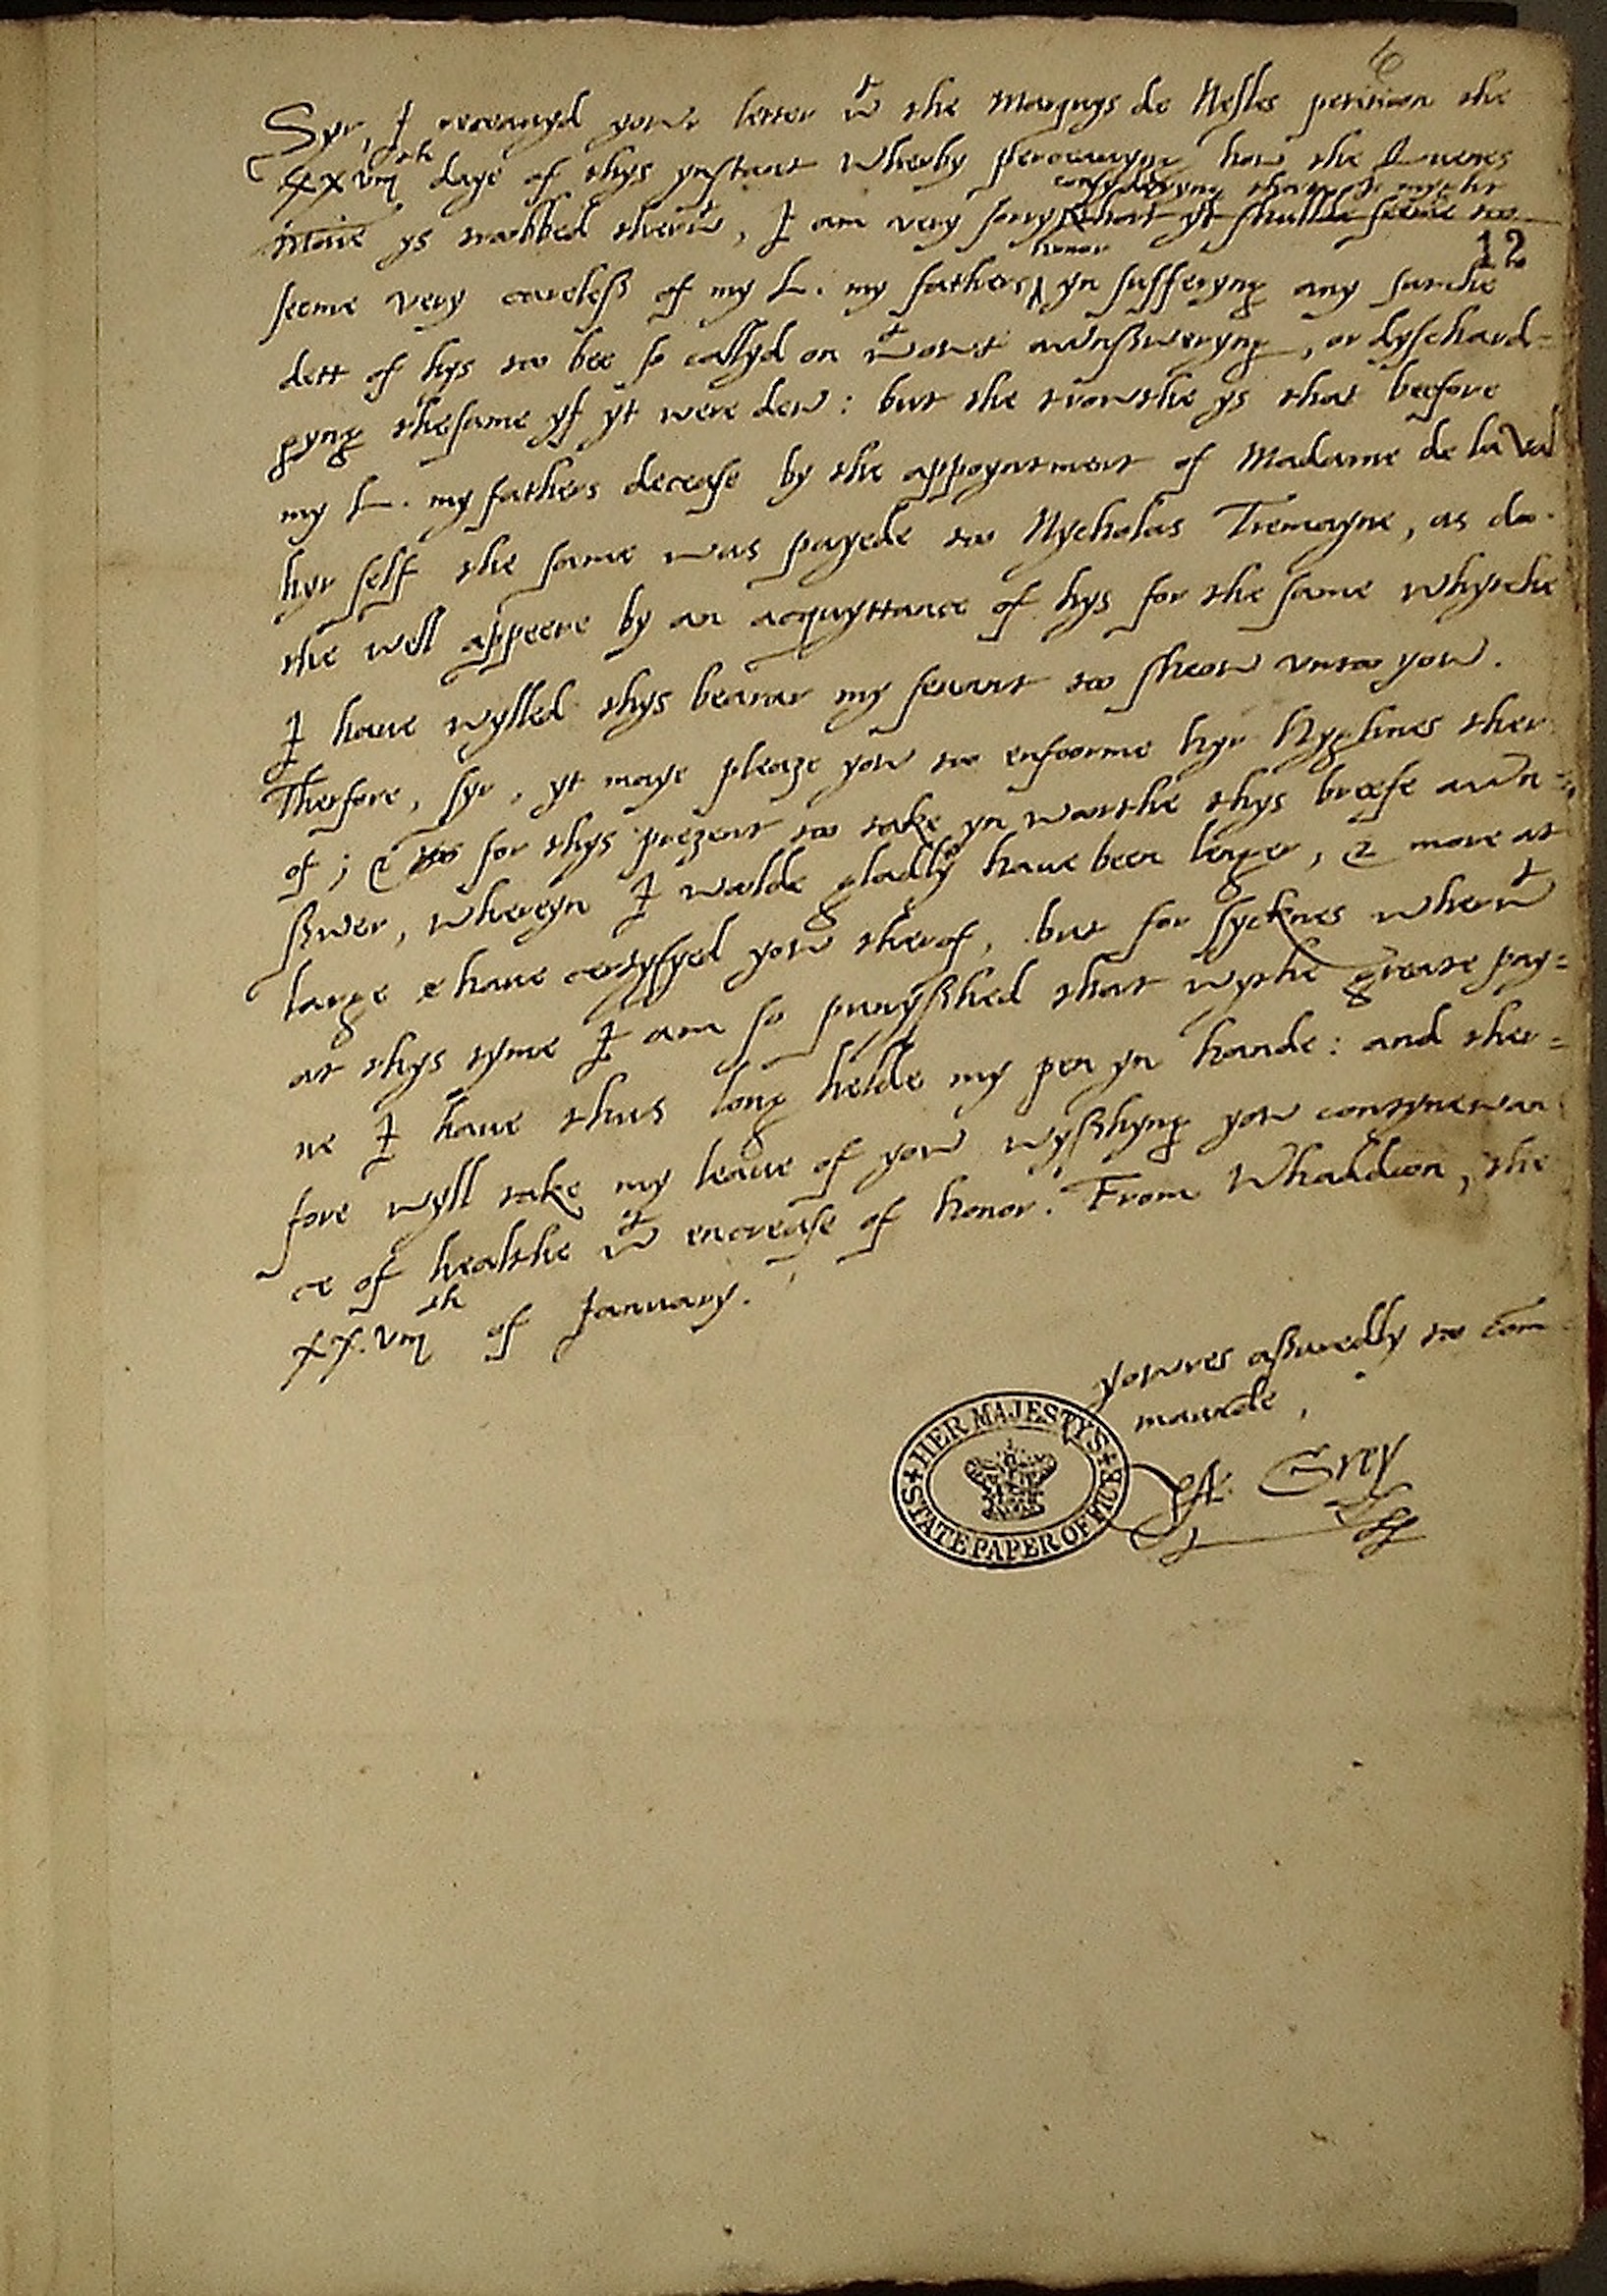 6
Syr, I receauyd yowr letter wt the Marquys de Nesles peticion the
xxviijth daye of thys ynstant wherby perceauyng how the Queenes
consyderyng that I myght
Ma:tie ys trobbled therwt, I am very sory that yt shulde seeme too
12
honor
seeme very careless of my L. my fathers yn sufferyng any sutche
dett of hys too bee so callyd on wtowt awnsweryng, or dyschard=
gyng thesame yf yt were dew: but the trowthe ys that beefore
my L. my fathers decease by the appoyntment of Madame de la Val
hyr self the same was payede too Nycholas Tremayne, as doo
the well appeere by an acquyttance of hys for the same whytche
I haue wylled thys bearar my seruant too sheow vntoo yow.
Therfore, syr, yt maye pleaze yow too enfoorme hyr Hyghnes ther
of; & for thys prezent too take yn worthe thys breefe awn=
swer, whereyn I woolde gladly haue been lenger, & more at
large haue certyfyed yow therof, but for sycknes wherwt
at thys tyme I am so punysshed that wythe greate pay=
ne I haue thus long helde my pen yn hande: and ther=
fore wyll take my leaue of yow wysshyng yow contynewan
ce of healthe wt encrease of honor. From Whaddon, the
xx.viijth of January.
yowres assuredly too com=
maunde,
A. Grey
HER MAJESTY'S STATE PAPER OFFICE